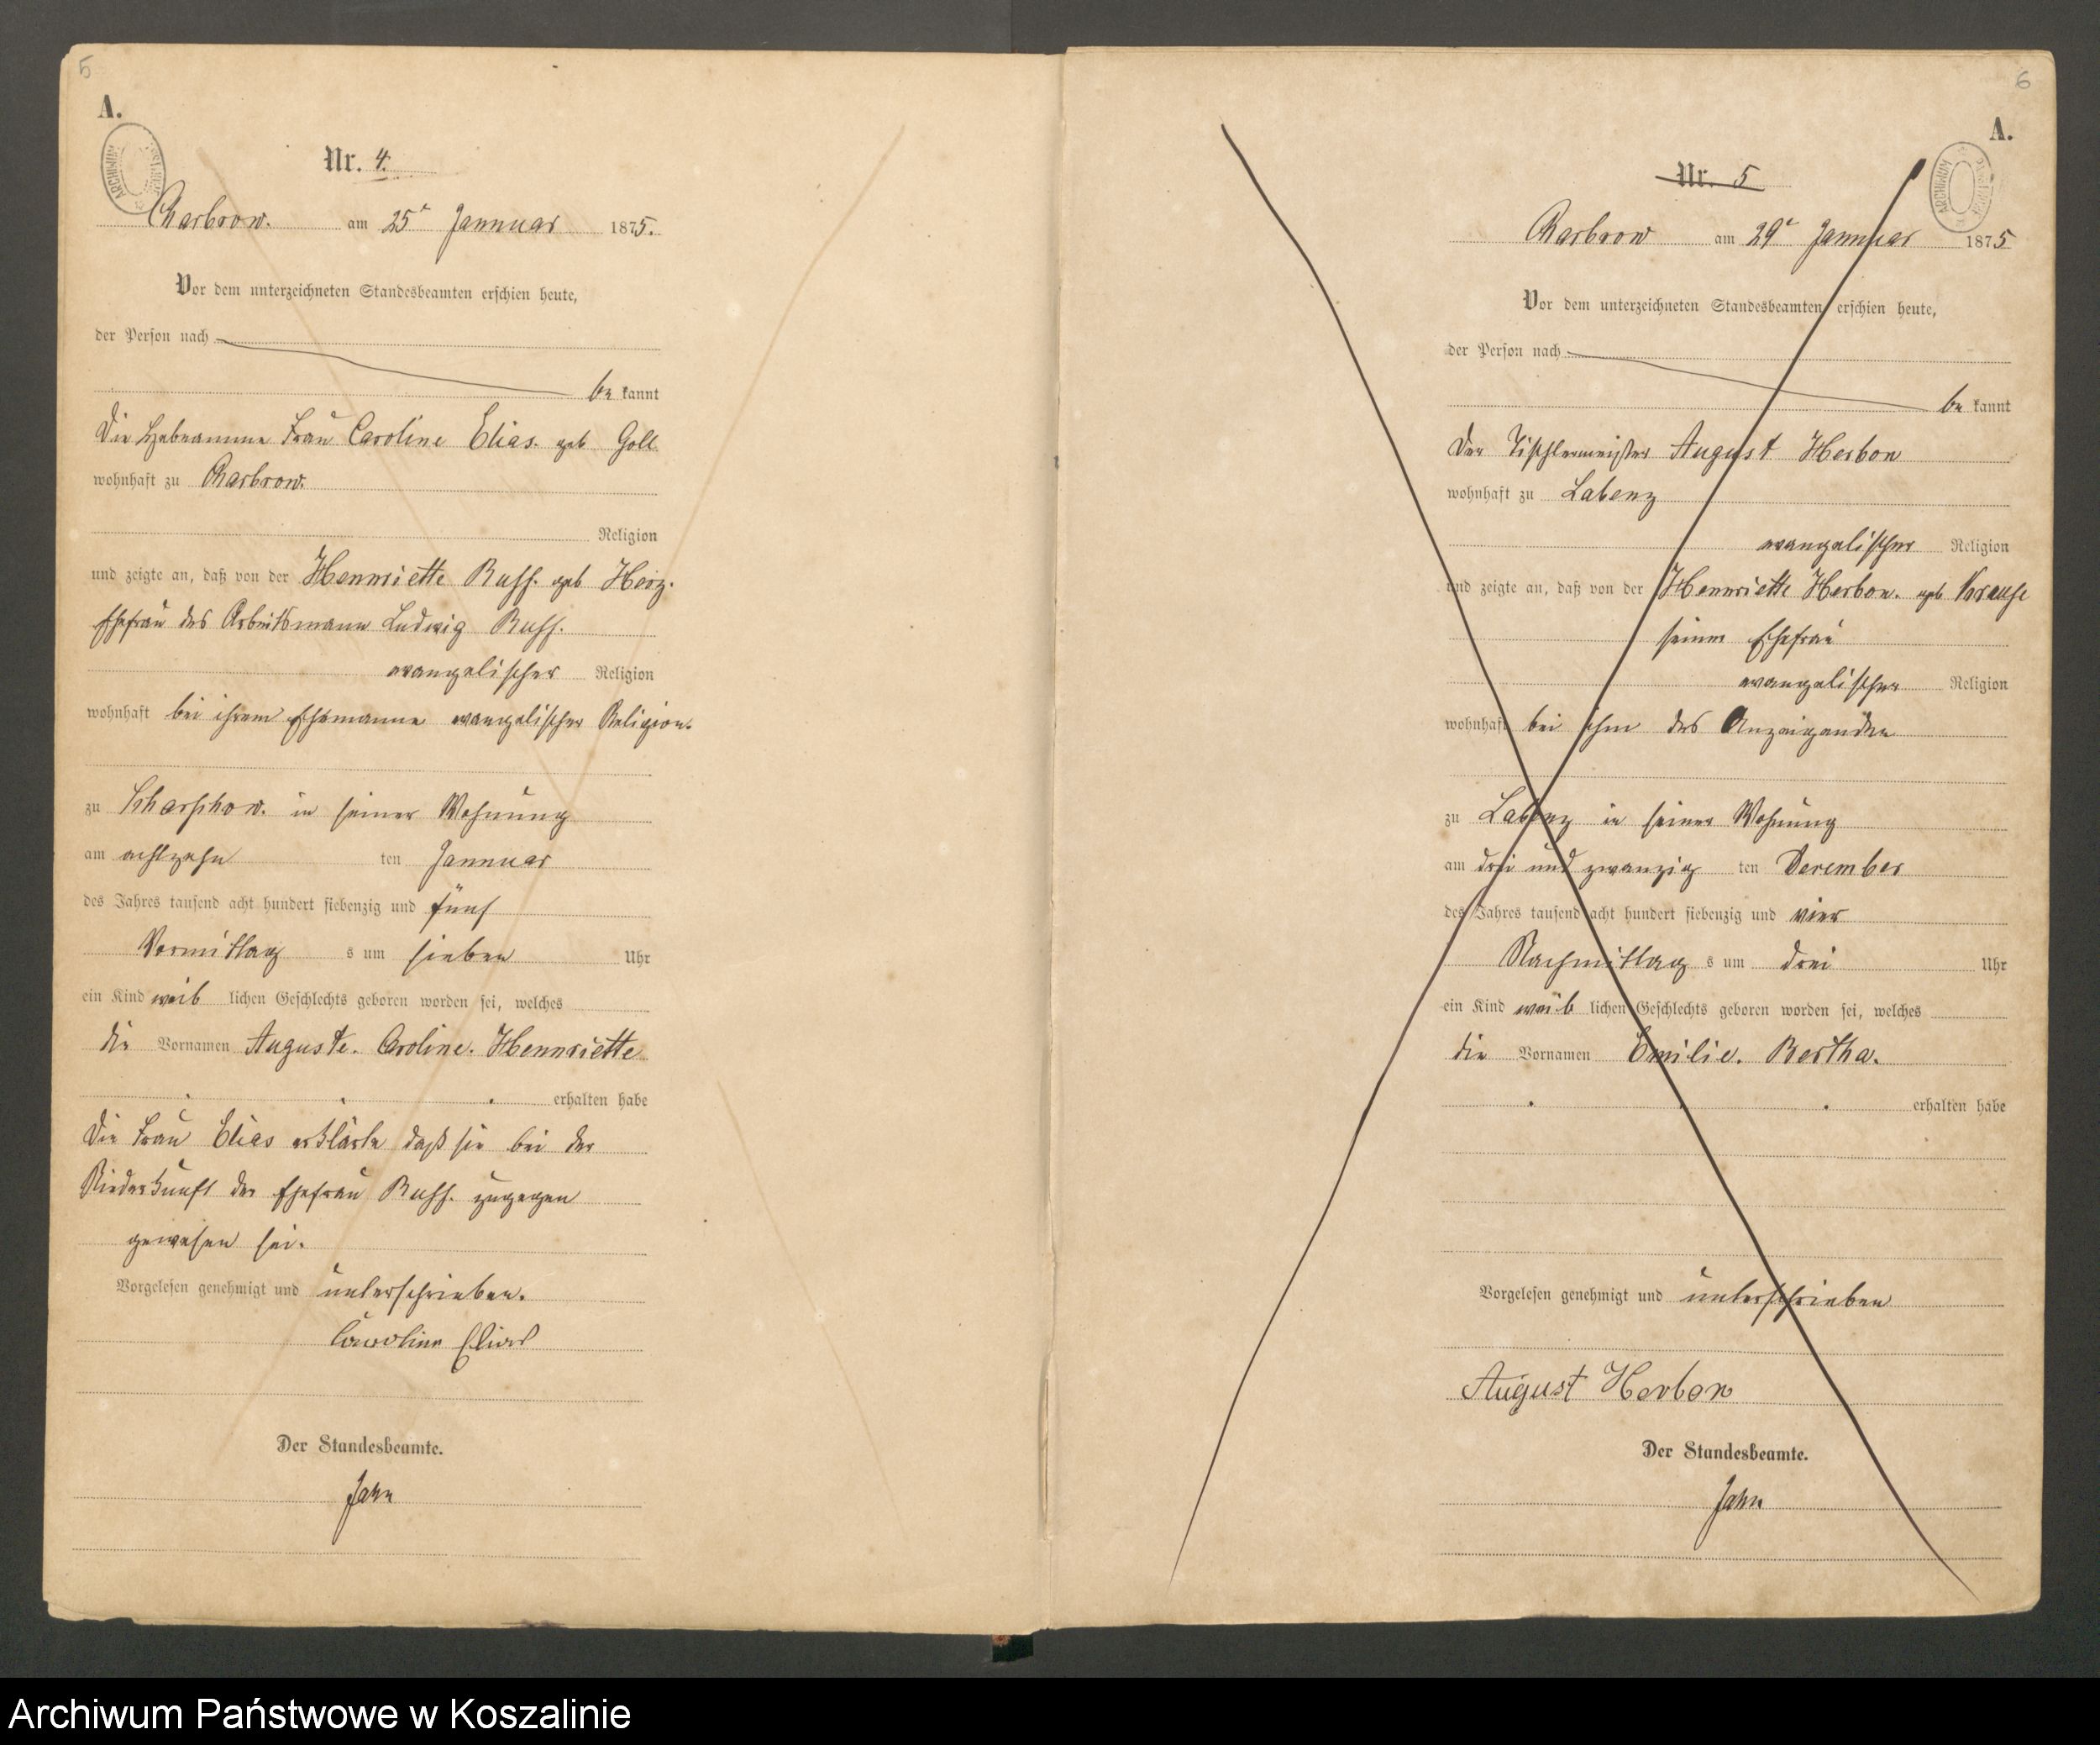 5
A.
Nr. 4.
Charbrow. am 25t Jannuar 1875.
Vor dem unterzeichneten Standesbeamten erschien heute,
der Person nach
be kannt
Die Hebeamme Frau Caroline Elias. geb Goll
wohnhaft zu Charbrow.
Religion
und zeigte an, daß von der Hennriette Ruff. geb Herz.
Ehefrau des Arbeitsmann Ludwig Ruff.
evangelischer Religion
wohnhaft bei ihrem Ehemanne evangelischer Religion.
zu Scharschow. in seiner Wohnung
am achtzehn ten Jannuar
des Jahres tausend acht hundert siebenzig und fünf
Vormittag s um sieben Uhr
ein Kind weib lichen Geschlechts geboren worden sei, welches
die Vornamen Auguste. Caroline. Hennriette
erhalten habe
Die Frau Elias erklärte daß sie bei der
Niederkunft der Ehefrau Ruff. zugegen
gewesen sei.
Vorgelesen genehmigt und unterschrieben.
Caroline Elias
Der Standesbeamte.
Jahn
6
A.
Nr. 5
Charbrow am 29t Jannuar 1875
Vor dem unterzeichneten Standesbeamten erschien heute,
der Person nach
be kannt
Der Tischlermeister August Herbon
wohnhaft zu Labenz
evangelischer Religion
und zeigte an, daß von der Hennriette Herbon. geb Krause
seiner Ehefrau
evangelischer Religion
wohnhaft bei ihm des Anzeigenden
zu Labenz in seiner Wohnung
am drei und zwanzig ten December
des Jahres tausend acht hundert siebenzig und vier
Nachmittag s um drei Uhr
ein Kind weib lichen Geschlechts geboren worden sei, welches
die Vornamen Emilie. Bertha.
erhalten habe
Vorgelesen genehmigt und unterschrieben
August Herbon
Der Standesbeamte.
Jahn
Archiwum Państwowe w Koszalinie